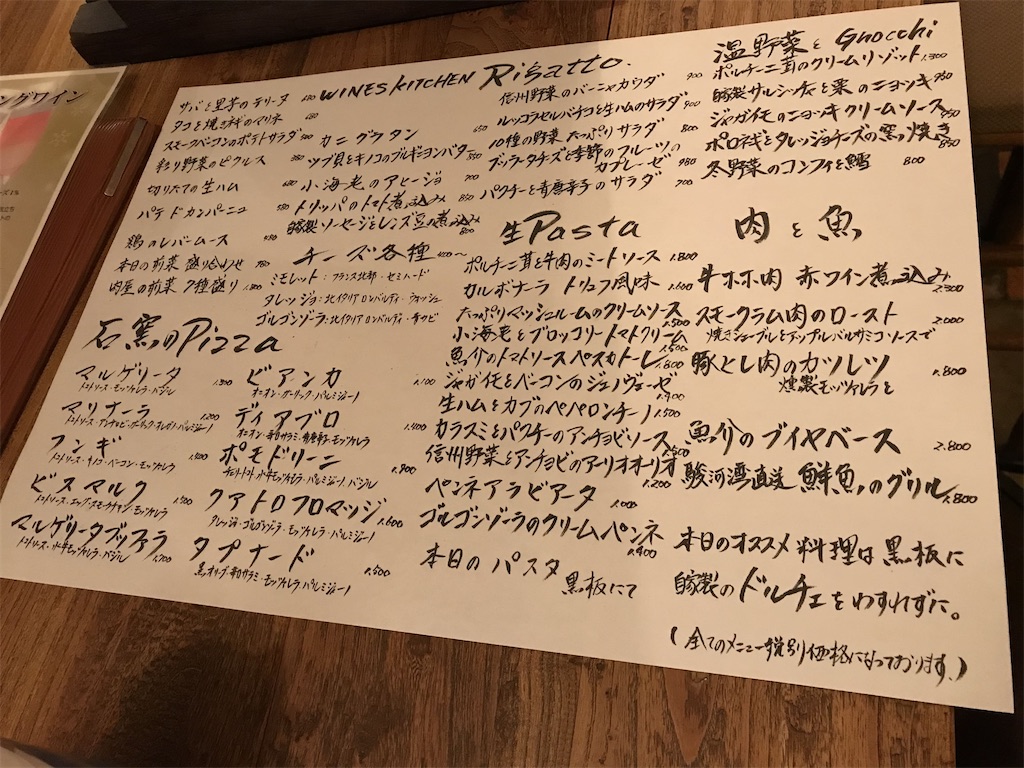 ングワイン
WINES KITCHEN Risatto.
サバと里芋のテリーヌ
タコと焼きネギのマリネ
スモークベーコンのポテトサラダ
彩り野菜のピクルス
切りたての生ハム
パテ ド カンパーニュ
鶏のレバームース
本日の前菜 盛り合わせ
肉屋の前菜 7種盛り 1.800
カニグラタン
ツブ貝とキノコのブルギニヨンバター
小海老のアヒージョ 700
トリッパのトマト煮込み 850
自家製ソーセージとレンズ豆の煮込み 800
チーズ各種
ミモレット:フランス北部・セミハード
タレッジョ:北イタリア ロンバルディ・ウォッシュ
ゴルゴンゾーラ:北イタリア ロンバルディ・青カビ
信州野菜のバーニャカウダ 900
ルッコラセルバチコと生ハムのサラダ 900
10種の野菜 たっぷりサラダ 800
ブッラータチーズと季節のフルーツの
カプレーゼ 980
パクチーと青唐辛子のサラダ 700
温野菜と Gnocchi
ポルチーニ茸のクリームリゾット 1.300
自家製サルシッチャと栗のニョッキ 980
ジャガイモのニョッキ クリームソース 950
ポロネギとタレッジョチーズの窯っ焼き 850
冬野菜のコンフィと鱈 800
石窯のPizza
マルゲリータ 1.300
トマトソース・モッツァレラ・バジル
マリナーラ 1.200
トマトソース・アンチョビ・ガーリック・オレガノ・パルミジャーノ
フンギ 1.400
トマトソース・キノコ・ベーコン・モッツァレラ
ビスマルク 1.500
トマトソース・エッグ・スモークチキン・モッツァレラ
マルゲリータブッファラ 1.700
トマトソース・水牛モッツァレラ・バジル
ビアンカ 1.100
オニオン・ガーリック・パルミジャーノ
ディアブロ
オニオン・辛口サラミ・青唐辛子・モッツァレラ
ポモドリーニ 1.800
チェリートマト・水牛モッツァレラ・パルミジャーノ・バジル
クアトロフロマッジ 1.600
タレッジョ・ゴルゴンゾーラ・モッツァレラ・パルミジャーノ
タプナード 1.500
黒オリーブ・辛口サラミ・モッツァレラ・パルミジャーノ
生Pasta
ポルチーニ茸と牛肉のミートソース 1.800
カルボナーラ トリュフ風味 1.600
たっぷりマッシュルームのクリームソース 1.500
小海老とブロッコリートマトクリーム 1.500
魚介のトマトソース ペスカトーレ 1.800
ジャガイモとベーコンのジェノヴェーゼ 1.400
生ハムとカブのペペロンチーノ 1.500
カラスミとパクチーのアンチョビソース 1.500
信州野菜とアンチョビのアーリオオーリオ 1.200
ペンネアラビアータ 1.000
ゴルゴンゾーラのクリームペンネ 1.400
本日の パスタ
黒板にて
肉と魚
牛ホホ肉 赤ワイン煮込み 2.300
スモークラム肉のロースト 2.000
焼きシューブルとアップルバルサミコソースで
豚ヒレ肉のカツレツ 1.800
燻製モッツァレラと
魚介のブイヤベース 2.800
駿河湾直送 鮮魚のグリル 1.800
本日のオススメ料理は黒板に
自家製のドルチェをわすれずに。
(全てのメニュー税別価格になっております。)